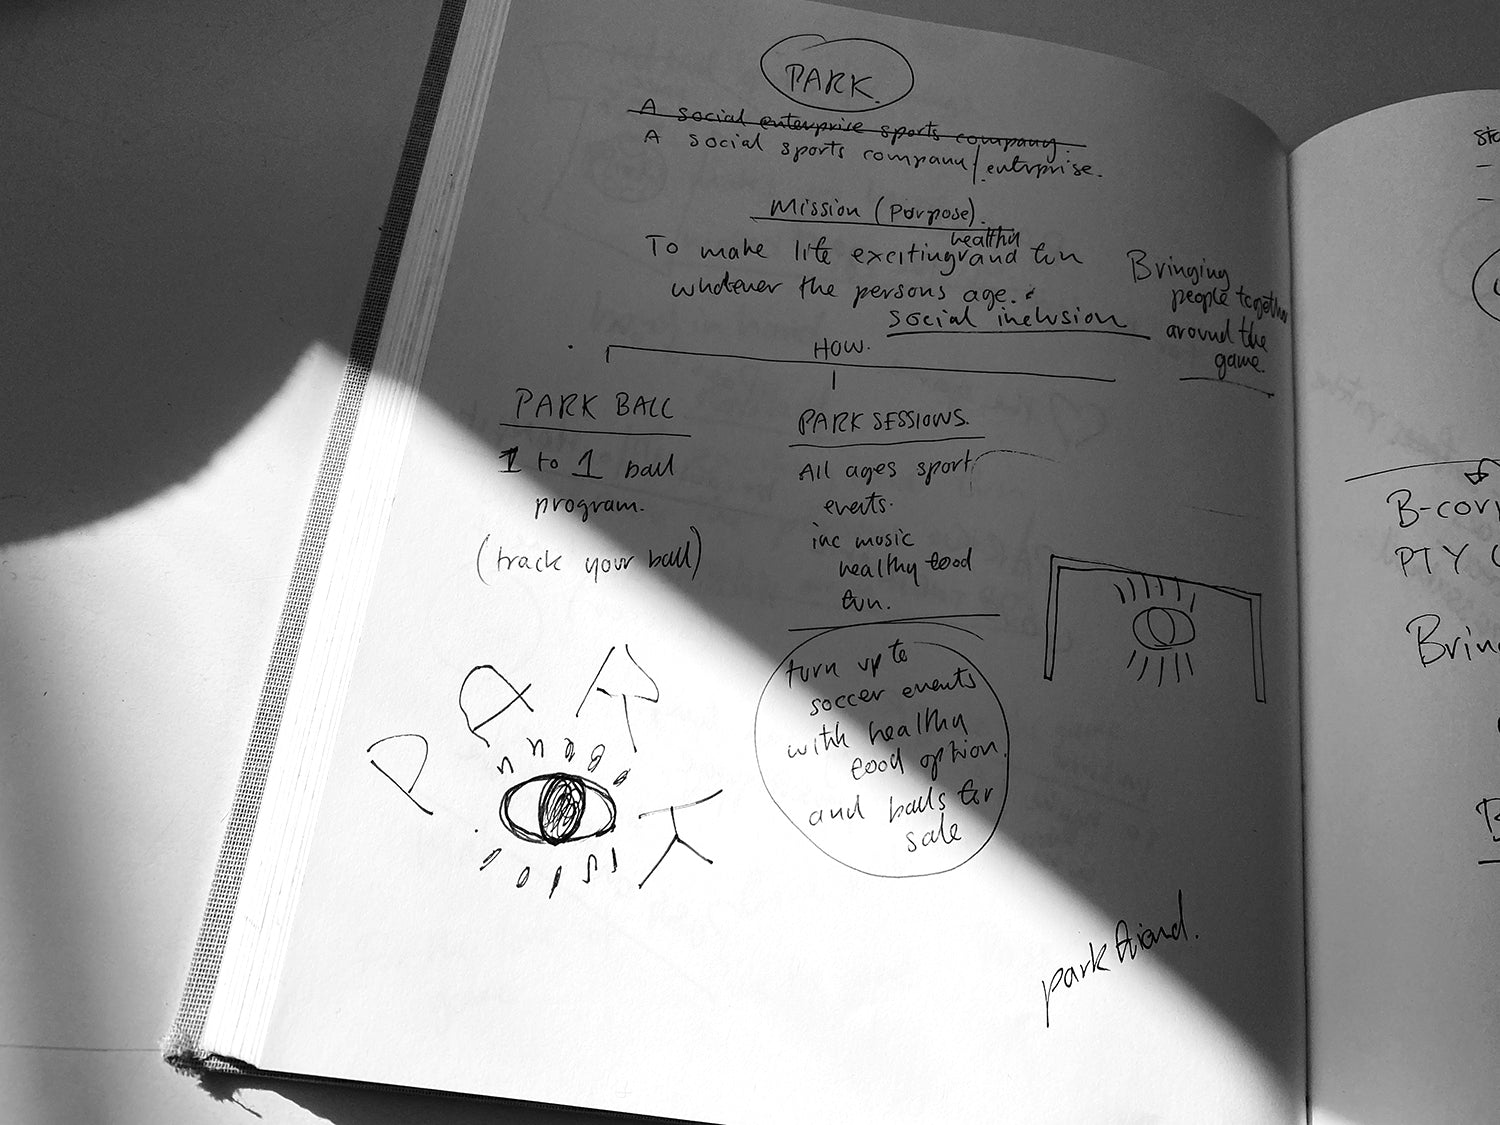 PARK.
A social enterprise sports company.
A social sports company/enterprise.
Mission (Purpose).
healthy
To make life exciting and fun
whatever the persons age. &
social inclusion
Bringing
people together
around the
game.
HOW.
PARK BALL
1 to 1 ball
program.
(track your ball)
PARK SESSIONS.
All ages sport
events.
inc music
healthy food
fun.
turn up to
soccer events
with healthy
food option.
and balls for
sale
PARK
park friend.
B-corp
PTY